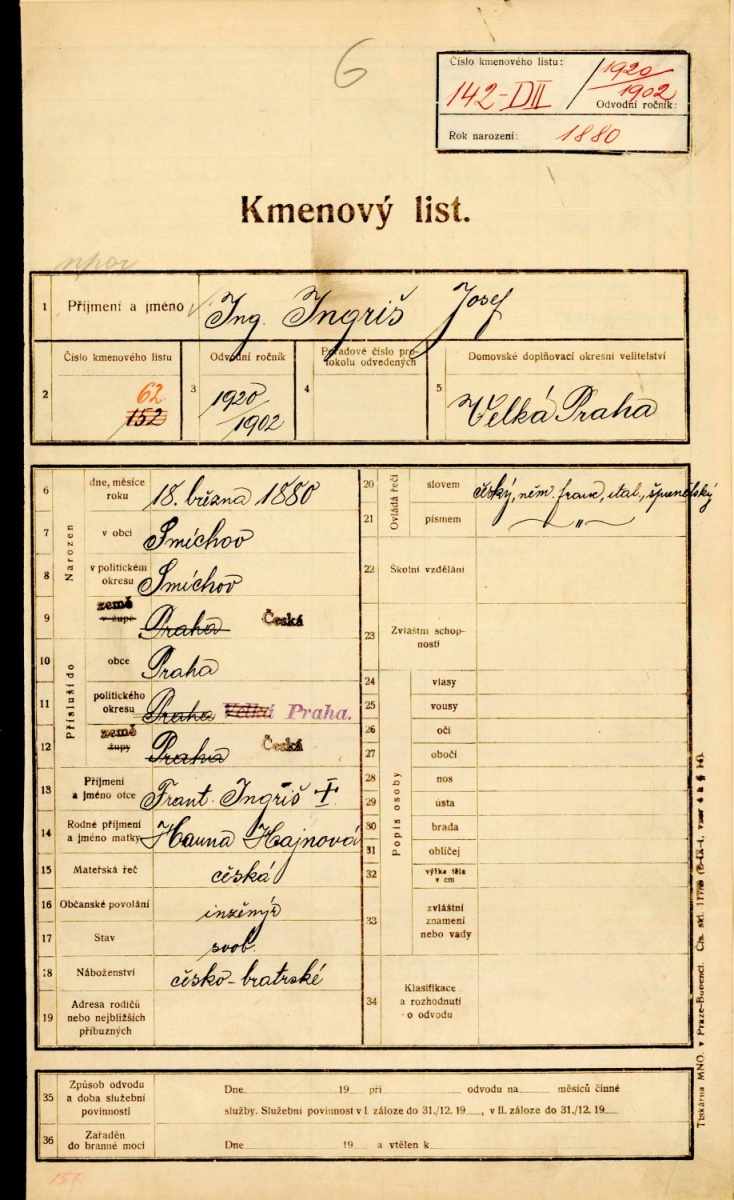 6
Číslo kmenového listu:
142-DII / 1920/1902
Odvodní ročník:
Rok narození: 1880
Kmenový list.
npor
1 Příjmení a jméno Ing. Ingriš Josef
2 Číslo kmenového listu 62 152
3 Odvodní ročník 1920/1902
4 Pořadové číslo protokolu odvedených
5 Domovské doplňovací okresní velitelství Velká Praha
Narozen
6 dne, měsíce roku 18. března 1880
7 v obci Smíchov
8 v politickém okresu Smíchov
9 země v župě Praha Česká
Přísluší do
10 obce Praha
11 politického okresu Praha Velká Praha.
12 země župy Praha Česká
13 Příjmení a jméno otce Frant. Ingriš †
14 Rodné příjmení a jméno matky Hanna Hajnová
15 Mateřská řeč česká
16 Občanské povolání inženýr
17 Stav svob.
18 Náboženství česko-bratrské
19 Adresa rodičů nebo nejbližších příbuzných
Ovládá řečí
20 slovem český, něm. franc, ital., španělský
21 písmem "
22 Školní vzdělání
23 Zvláštní schopnosti
Popis osoby
24 vlasy
25 vousy
26 oči
27 obočí
28 nos
29 ústa
30 brada
31 obličej
32 výška těla v cm
33 zvláštní znamení nebo vady
34 Klasifikace a rozhodnutí o odvodu
35 Způsob odvodu a doba služební povinnosti
Dne 19 při odvodu na měsíců činné
služby. Služební povinnost v I. záloze do 31./12. 19 , v II. záloze do 31./12. 19
36 Zařaděn do branné moci
Dne 19 a vtělen k
Tiskárna MNO. v Praze-Bubenči. Čís. skl.